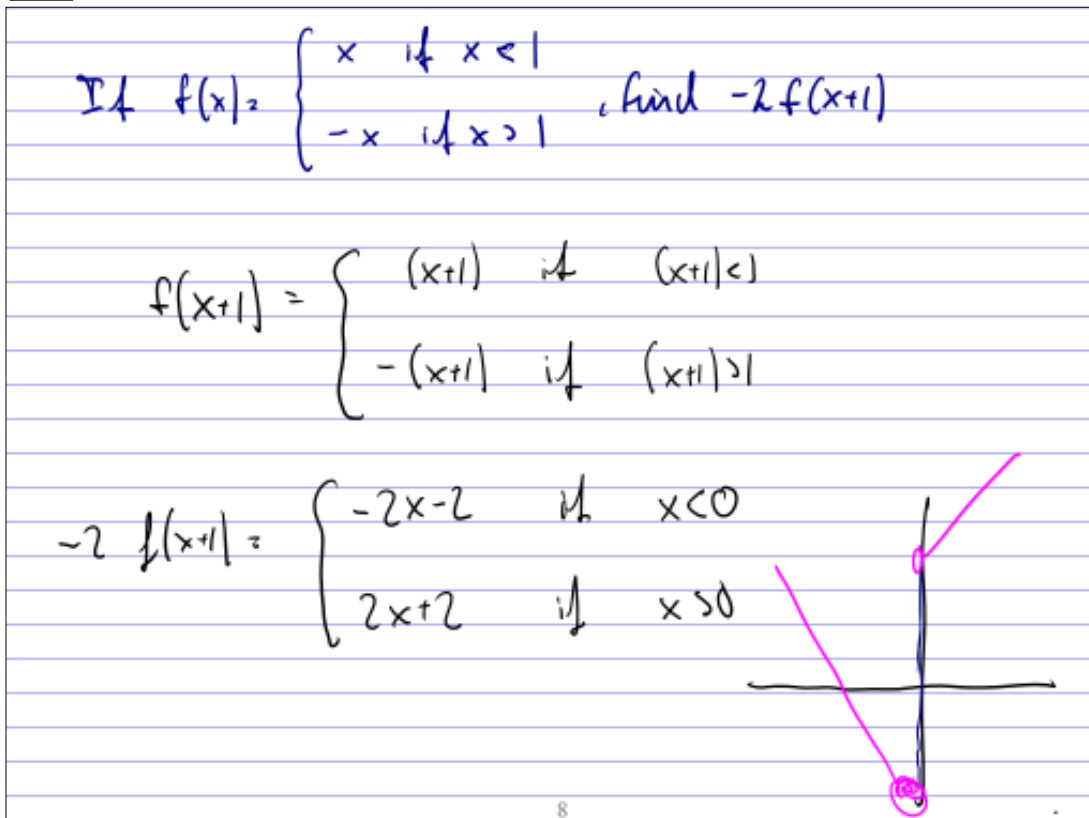 If f(x) = { x if x < 1
-x if x > 1 , find -2f(x+1)
f(x+1) = { (x+1) if (x+1) < 1
-(x+1) if (x+1) > 1
-2 f(x+1) = { -2x-2 if x<0
2x+2 if x>0
8